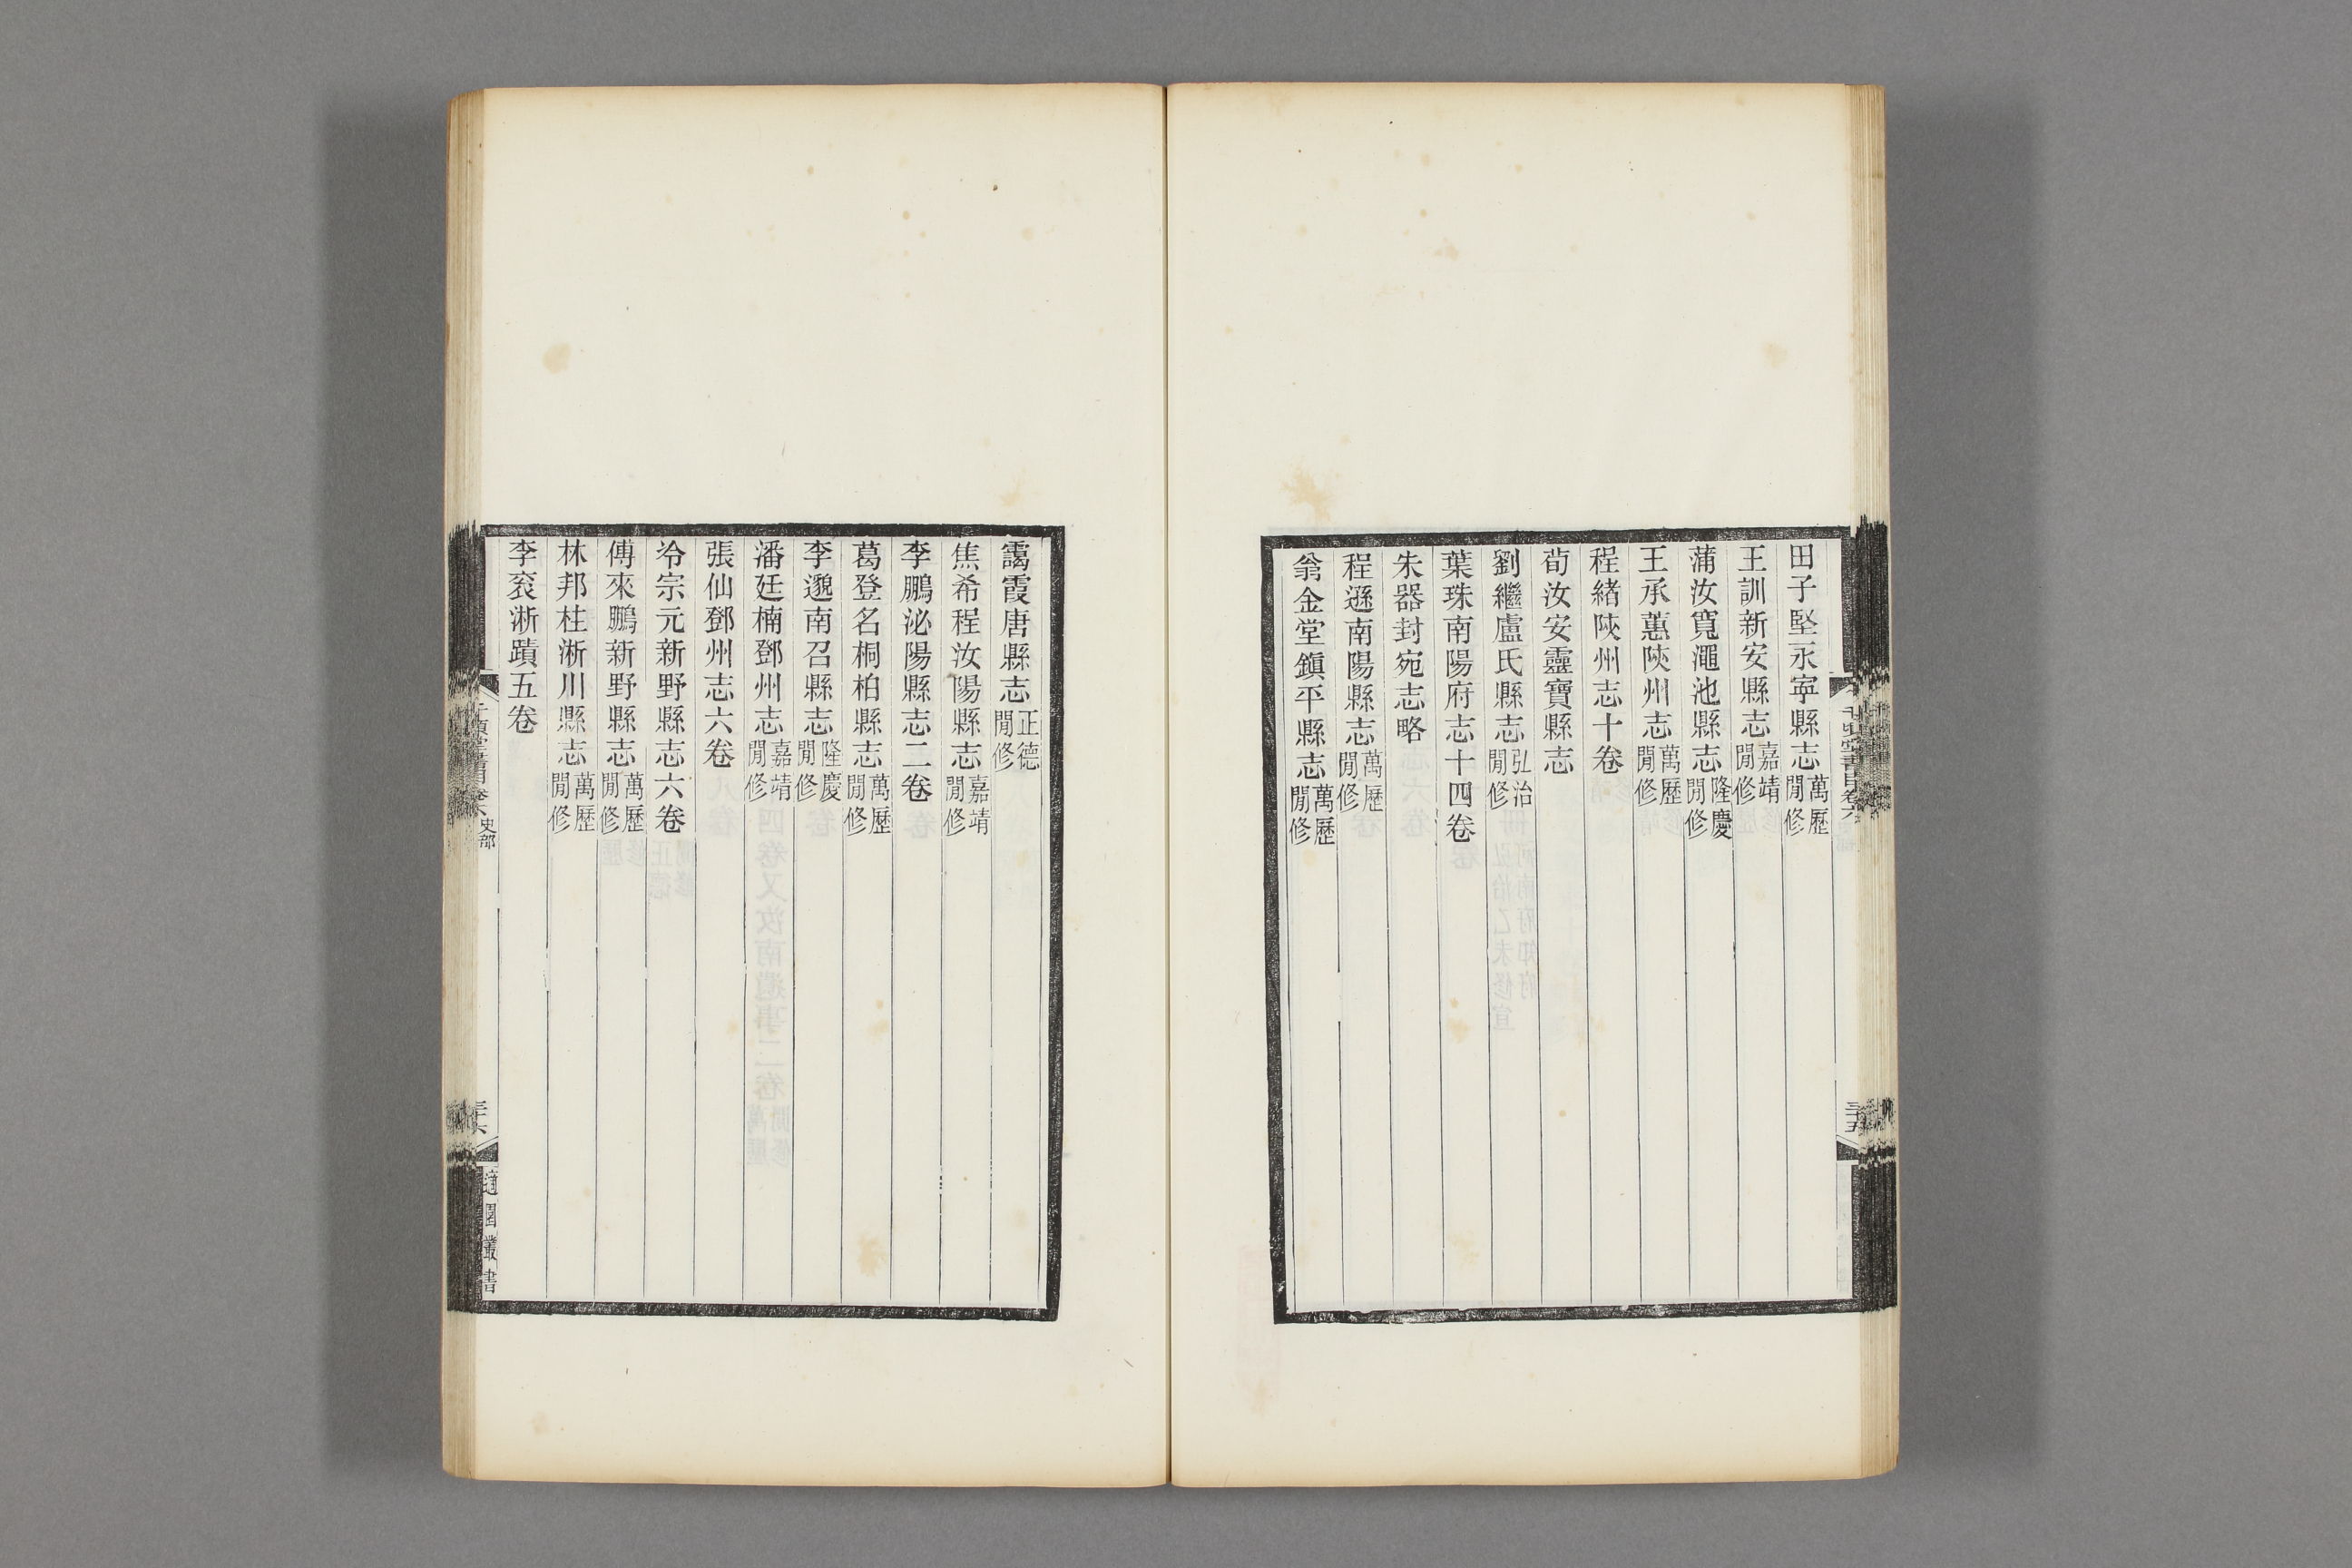 田子堅永寧縣志萬歷閒修
王訓新安縣志嘉靖閒修
蒲汝寬澠池縣志隆慶閒修
王承蕙陝州志萬歷閒修
程緒陝州志十卷
荀汝安靈寶縣志
劉繼盧氏縣志弘治閒修
葉珠南陽府志十四卷
朱器封宛志略
程遜南陽縣志萬歷閒修
翁金堂鎭平縣志萬歷閒修
三十五
靄霞唐縣志正德閒修
焦希程汝陽縣志嘉靖閒修
李鵬泌陽縣志二卷
葛登名桐柏縣志萬歷閒修
李邎南召縣志隆慶閒修
潘廷楠鄧州志嘉靖閒修
張仙鄧州志六卷
泠宗元新野縣志六卷
傅來鵬新野縣志萬歷閒修
林邦柱淅川縣志萬歷閒修
李袞淅蹟五卷
史部
三十六
適園叢書